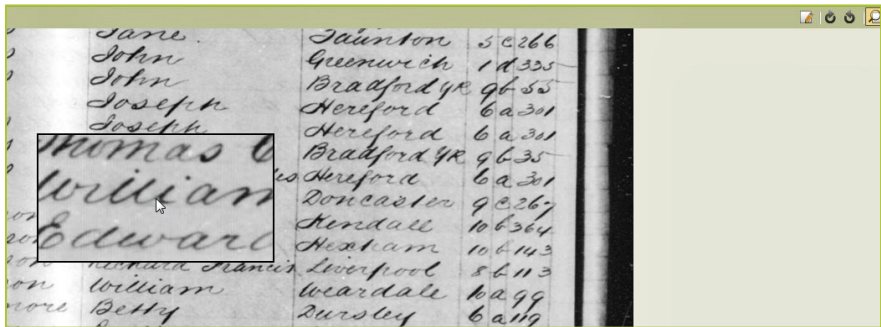 Jane Taunton 5 c 266
John Greenwich 1 d 335
John Bradford YK 9 b 55
Joseph Hereford 6 a 301
Joseph Hereford 6 a 301
Thomas Bradford YK 9 b 35
Hereford 6 a 301
William Doncaster 9 c 267
Kendall 10 b 364
Edward Hexham 10 b 143
Richard Francis Liverpool 8 b 113
William Weardale 10 a 99
Betty Dursley 6 a 119